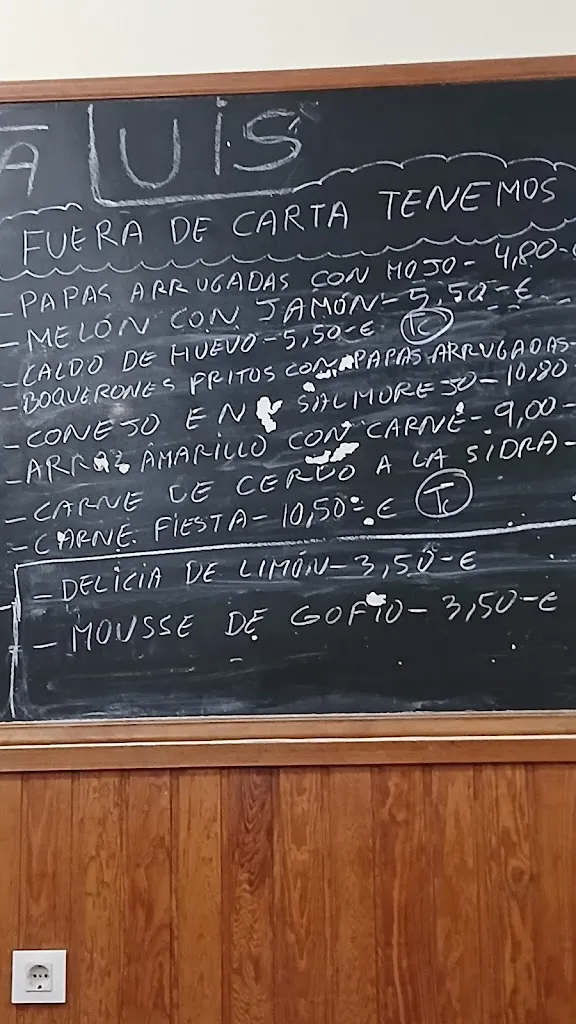 A LUIS
FUERA DE CARTA TENEMOS
- PAPAS ARRUGADAS CON MOJO - 4,80-€
- MELÓN CON JAMÓN - 5,50-€
- CALDO DE HUEVO - 5,50-€ TC
- BOQUERONES FRITOS CON PAPAS ARRUGADAS -
- CONEJO EN SALMOREJO - 10,80-
- ARROZ AMARILLO CON CARNE - 9,00-
- CARNE DE CERDO A LA SIDRA -
- CARNE FIESTA - 10,50-€ TC
- DELICIA DE LIMÓN - 3,50-€
- MOUSSE DE GOFIO - 3,50-€